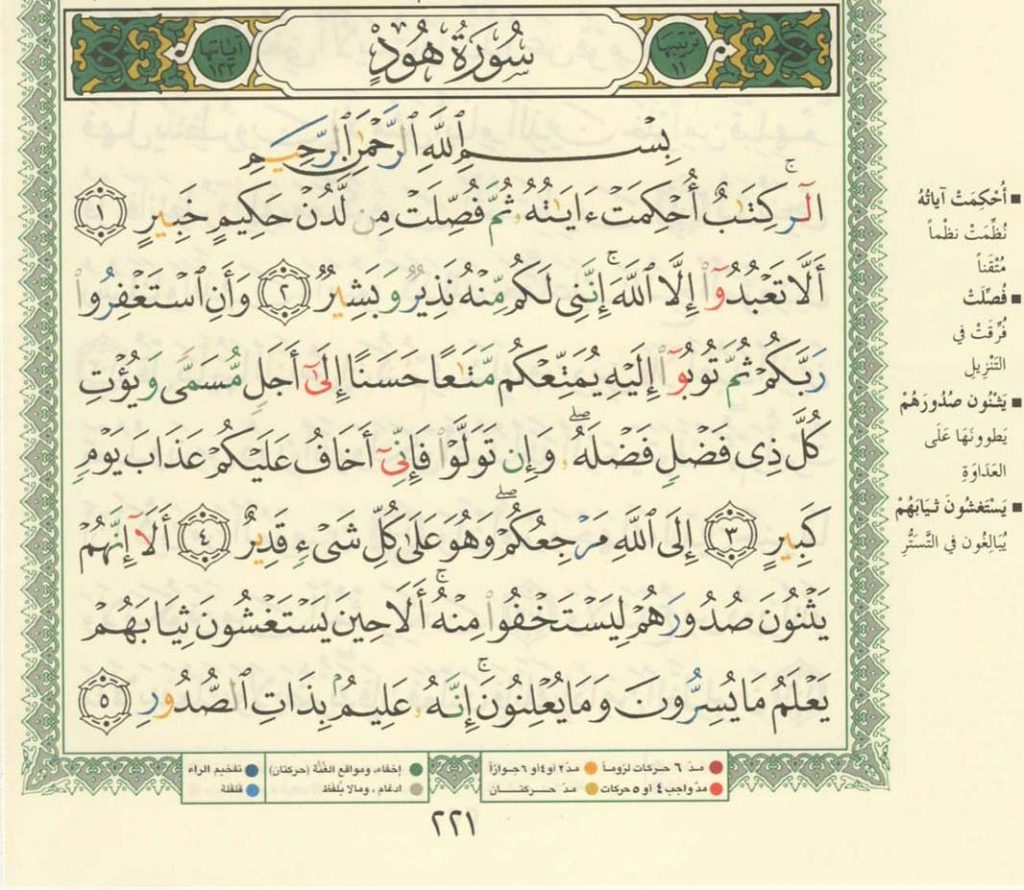 ترتيبها ١١
سُورَةُ هُودٍ
آياتها ١٢٣
بِسْمِ ٱللَّهِ ٱلرَّحْمَٰنِ ٱلرَّحِيمِ
الٓر ۚ كِتَٰبٌ أُحْكِمَتْ ءَايَٰتُهُۥ ثُمَّ فُصِّلَتْ مِن لَّدُنْ حَكِيمٍ خَبِيرٍ ١
أَلَّا تَعْبُدُوٓا۟ إِلَّا ٱللَّهَ ۚ إِنَّنِى لَكُم مِّنْهُ نَذِيرٌ وَبَشِيرٌ ٢ وَأَنِ ٱسْتَغْفِرُوا۟
رَبَّكُمْ ثُمَّ تُوبُوٓا۟ إِلَيْهِ يُمَتِّعْكُم مَّتَٰعًا حَسَنًا إِلَىٰٓ أَجَلٍ مُّسَمًّى وَيُؤْتِ
كُلَّ ذِى فَضْلٍ فَضْلَهُۥ ۖ وَإِن تَوَلَّوْا۟ فَإِنِّىٓ أَخَافُ عَلَيْكُمْ عَذَابَ يَوْمٍ
كَبِيرٍ ٣ إِلَى ٱللَّهِ مَرْجِعُكُمْ ۖ وَهُوَ عَلَىٰ كُلِّ شَىْءٍ قَدِيرٌ ٤ أَلَآ إِنَّهُمْ
يَثْنُونَ صُدُورَهُمْ لِيَسْتَخْفُوا۟ مِنْهُ ۚ أَلَا حِينَ يَسْتَغْشُونَ ثِيَابَهُمْ
يَعْلَمُ مَا يُسِرُّونَ وَمَا يُعْلِنُونَ ۚ إِنَّهُۥ عَلِيمٌۢ بِذَاتِ ٱلصُّدُورِ ٥
■ أُحْكِمَتْ آياتُهُ
نُظِّمَتْ نَظْماً
مُتْقَناً
■ فُصِّلَتْ
فُرِّقَتْ فِي
التَّنْزِيلِ
■ يَثْنُون صُدُورَهُمْ
يَطوونَهَا عَلَى
العَدَاوَةِ
■ يَسْتَغشُونَ ثِيَابَهُمْ
يُبَالِغُون فِي التَّسَتُّرِ
مدّ ٦ حركات لزوماً
مدّ ٢ أو ٤ أو ٦ جوازاً
مدّ واجب ٤ أو ٥ حركات
مدّ حركتان
إخفاء، ومواقع الغُنَّة (حركتان)
تفخيم الراء
ادغام، ومالا يُلفظ
قلقلة
٢٢١